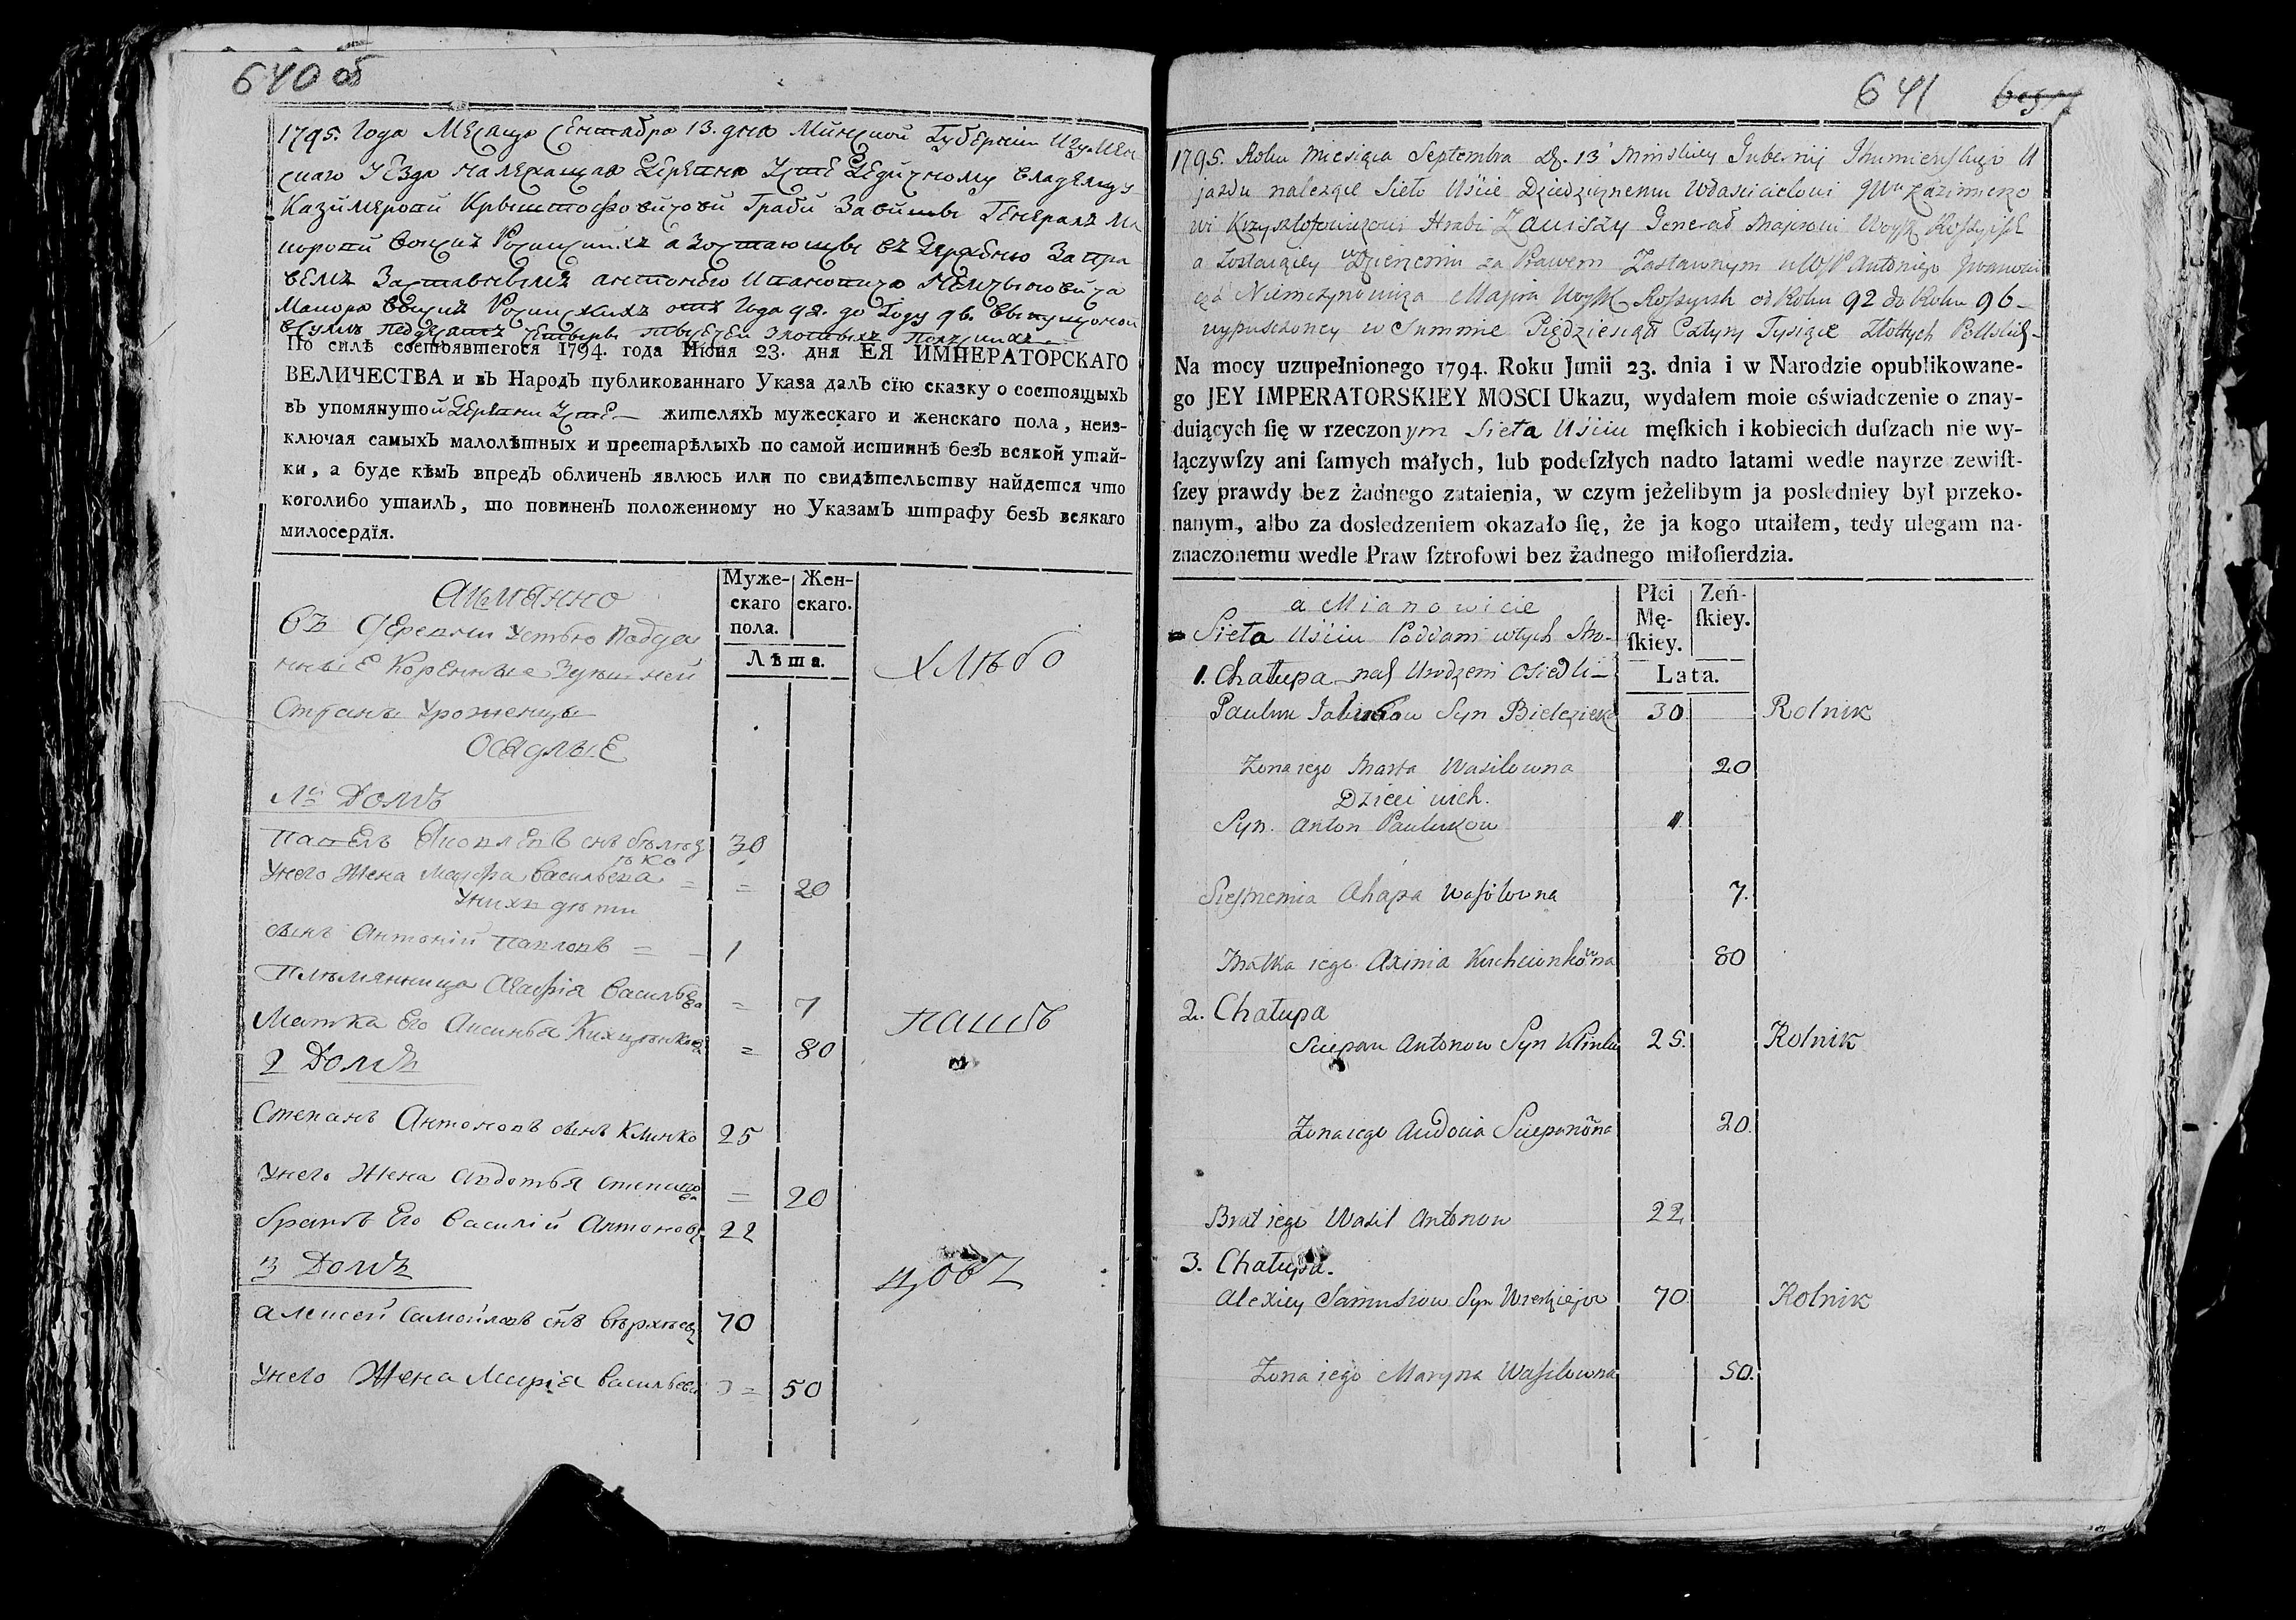 640 об
1795. Года Месяца Сентабра 13. дня Минской Губернии Игумен
скаго уезда належащая деревня Усте Дедичному владельцу
Казимеровй Крыштофовичови Граби Завишы Генерал Ма
иоровй воиск Росииских а зостаюшы в держеню за пра
вем Заставневым антонего Ивановича Немчыновича
Маиора воиск Росииских от Года 92. до Году 96. выпущоной
в сумме педдесят четыры тысечеи злотых Полских
По силѣ состоявшегося 1794. года Июня 23. дня ЕЯ ИМПЕРАТОРСКАГО
ВЕЛИЧЕСТВА и въ Народъ публикованнаго Указа далъ сїю сказку о состоящыхъ
въ упомянутой деревни Усте жителяхъ мужескаго и женскаго пола, неиз-
ключая самыхъ малолѣтныхъ и престарѣлыхъ по самой истиннѣ безъ всякой утай-
ки, а буде кѣмъ впредъ обличенъ явлюсь или по свидѣтельству найдется что
коголибо утаилъ, то повиненъ положенному по Указамъ штрафу безъ всякаго
милосердїя.
Муже-
скаго
пола.
Жен-
скаго.
Лѣта.
Аименно
Въ деревни Устью подда
нные коренные здешней
Страны уроженцы
осѣдлые
хлѣбо
1й Домъ
Павелъ Яковлевъ снъ бѣлез
ько 30
У него Жена Марфа васильева = = 20
У нихъ дѣти
сынъ Антоній павловъ = - 1
Племянница Агафія васильева = 7
Матка Его Аксинья = 80
пашъ
2 Домъ
Степанъ Антоновъ сынъ Клинко 25
У него Жена Авдотья степанова = 20
братъ Его василій Антоновъ 22
3 Домъ
цовъ
алексей самойловъ снъ 70
У него Жена Марія васильева = 50
641
1795. Roku Miesiąca Septembra D. 13 Minskiey Gubernij Ihumienskiego U
jazdu należące Sieło Uście Dziedzicznemu Własciciełowi JWu Kazimierzo
wi Krzysztofowiczowi Hrabi Zawiszy Generał Majorowi Woysk Rossyisk
a zostaiącey w Dzierżeniu za Prawem Zastawnym u WJP Antoniego Iwanowi
cza Niemczynowicza Majora Woysk Rossyisk od Roku 92 do Roku 96
wypuszczoney w Summie Pięćdziesiąt Cztyry Tysiące Złottych Polskich
Na mocy uzupełnionego 1794. Roku Junii 23. dnia i w Narodzie opublikowane-
go JEY IMPERATORSKIEY MOSCI Ukazu, wydałem moie oświadczenie o znay-
duiących ſię w rzeczonym Sieła Uściu męſkich i kobiecich duſzach nie wy-
łączywſzy ani ſamych małych, lub podeſzłych nadto latami wedle nayrze zewiſt-
ſzey prawdy bez żadnego zataienia, w czym jeżelibym ja posledniey był przeko-
nanym, albo za dosledzeniem okazało ſię, że ja kogo utaiłem, tedy ulegam na-
znaczonemu wedle Praw ſztrofowi bez żadnego miłoſierdzia.
Płci
Mę-
ſkiey.
Zeń-
ſkiey.
Lata.
a Mianowicie
Sieła Uściu Poddani w tych Stro-
1. Chałupa nach Urodzeni Osiedli
Pauluk Jakubow Syn 30 Rolnik
Zona iego Marta Wasilowna 20
Dzieci nich.
Syn. Anton Paulukow 1.
Siestrzenica Ahapa Wasilowna 7.
Matka iego Axinia 80
2. Chałupa
Sciepan Antonow Syn Klinko 25. Rolnik
Zona iego Audocia Sciepanowna 20.
Brat iego Wasil Antonow 22
3. Chałupa.
Alexiey Samusiow Syn 70 Rolnik
Zona iego Maryna Wasilowna 50.